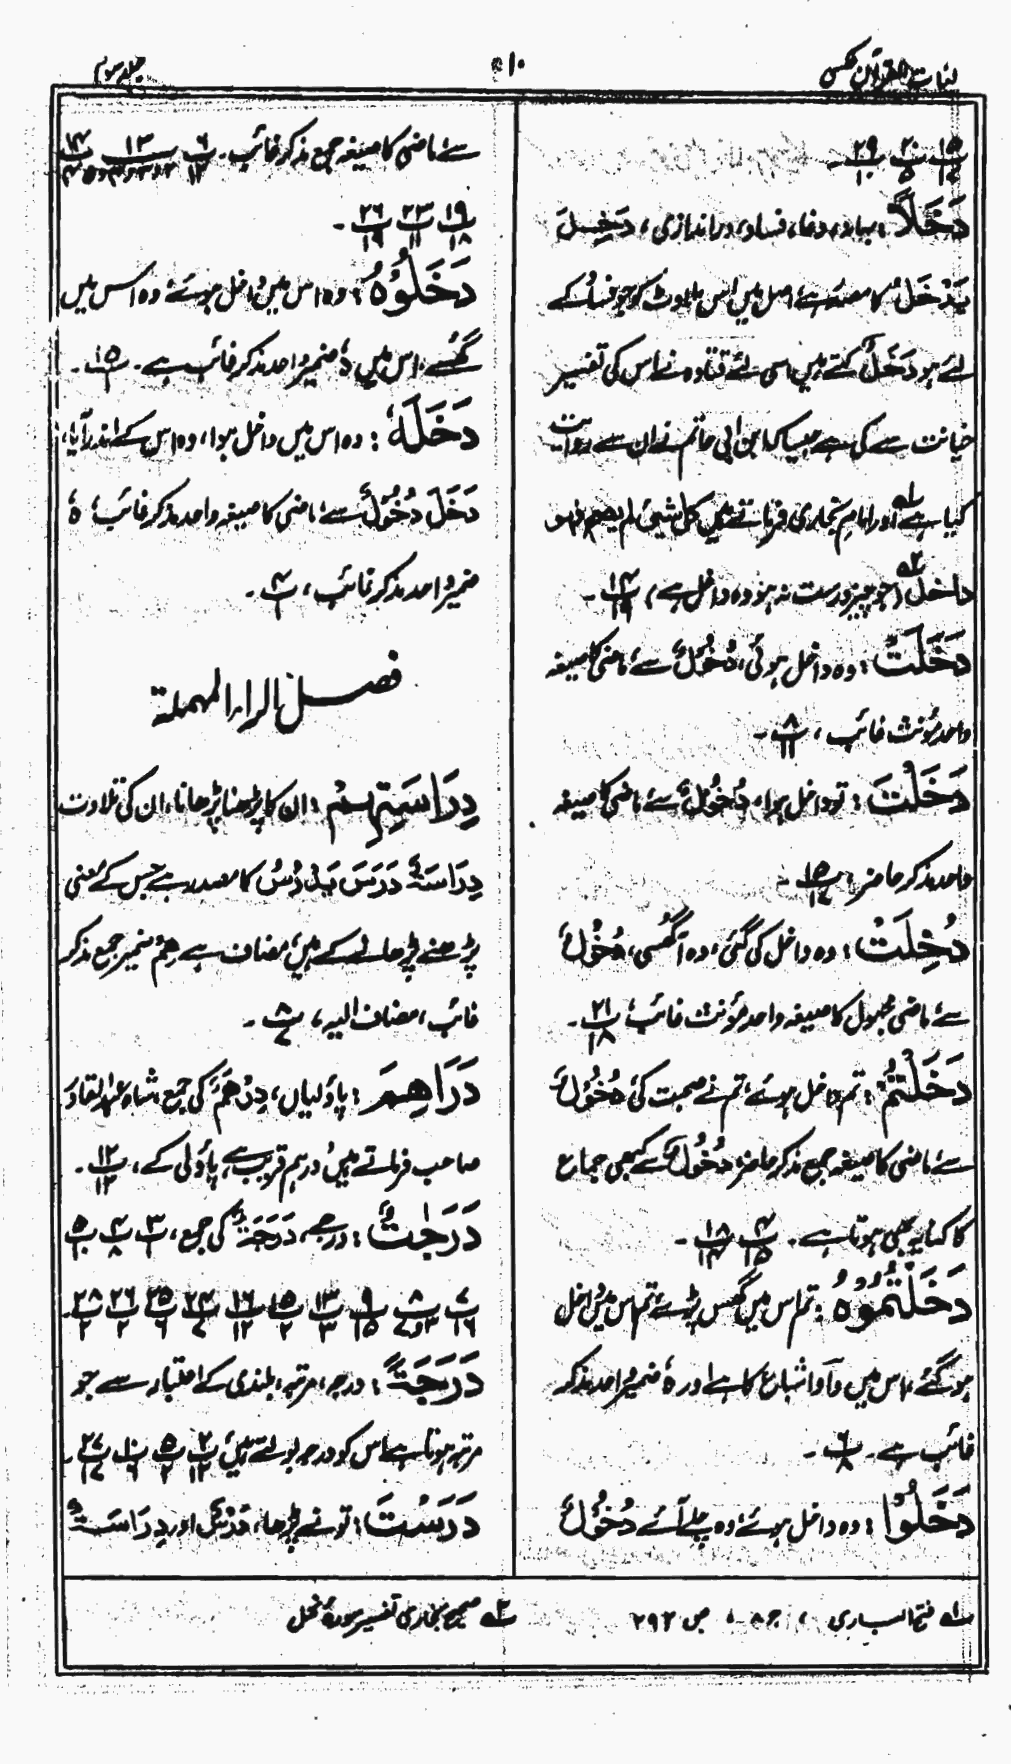 لغات القرآن مکمل
۵۱۰
جلد سوم
پ۱۵/۱۷ پ۲۰/۵ پ۲۹/۱۰ ۔
دَخَلًا : بہانہ، دغا، فساد، دراندازی، دَخِلَ
یَدْخَلُ کا مصدر ہے، اصل میں اس ملاوٹ کو جو فساد کے
لئے ہو دَخَلٌ کہتے ہیں اسی لئے قتادہ نے اس کی تفسیر
خیانت سے کی ہے جیسا کہ ابن ابی حاتم نے ان سے روایت
کیا ہے ۱؎ اور امام بخاری فرماتے ہیں کل شیئ لم یصح فہو
داخل ۲؎ (جو چیز درست نہ ہو وہ داخل ہے) پ۱۴/۱۹ ۔
دَخَلَتْ : وہ داخل ہوئی، دُخُوْلٌ سے، ماضی کا صیغہ
واحد مؤنث غائب، پ۸/۱۱ ۔
دَخَلْتَ : تو داخل ہوا، دُخُوْلٌ سے ماضی کا صیغہ
واحد مذکر حاضر، پ۱۵/۱۷ ۔
دُخِلَتْ : وہ داخل کی گئی، وہ آ گھسی، دُخُوْلٌ
سے، ماضی مجہول کا صیغہ واحد مؤنث غائب، پ۲۱/۱۸ ۔
دَخَلْتُمْ : تم داخل ہوئے، تم نے صحبت کی، دُخُوْلٌ
سے، ماضی کا صیغہ جمع مذکر حاضر، دُخُوْلٌ سے کبھی جماع
کا کنایہ بھی ہوتا ہے۔ پ۴/۱۵ پ۱۸/۱۴ ۔
دَخَلْتُمُوْهُ : تم اس میں گھس پڑے، تم اس میں داخل
ہو گئے، اس میں واؤ اشباع کا ہے اور ہٗ ضمیر واحد مذکر
غائب ہے۔ پ۶/۸ ۔
دَخَلُوْا : وہ داخل ہوئے، وہ چلے آئے، دُخُوْلٌ
سے، ماضی کا صیغہ جمع مذکر غائب۔ پ۶/۱۳ پ۱۳ پ۱۴/۴
پ۱۹/۱۸ پ۲۳/۱۱ پ۲۶/۱۹ ۔
دَخَلُوْهُ : وہ اس میں داخل ہوئے، وہ اس میں
گھسے، اس میں ہٗ ضمیر واحد مذکر غائب ہے۔ پ۱۵/۱ ۔
دَخَلَهٗ : وہ اس میں داخل ہوا، وہ اس کے اندر آیا،
دَخَلَ دُخُوْلٌ سے، ماضی کا صیغہ واحد مذکر غائب، ہٗ
ضمیر واحد مذکر غائب، پ۴/۱ ۔
فصل الراء المہملة
دِرَاسَتِهِمْ : ان کا پڑھنا پڑھانا، ان کی تلاوت
دِرَاسَةٌ دَرَسَ یَدْرُسُ کا مصدر ہے جس کے معنی
پڑھنے پڑھانے کے ہیں، مضاف ہے، ھُمْ ضمیر جمع مذکر
غائب، مضاف الیہ، پ۸/۷ ۔
دَرَاهِمَ : پاؤلیاں، دِرْهَمٌ کی جمع، شاہ عبدالقادر
صاحب فرماتے ہیں "درہم قریب ہے، پاؤلی کے، پ۱۲/۱۲ ۔
دَرَجٰتٌ : درجے، دَرَجَةٌ کی جمع، پ۳/۱ پ۴/۸ پ۵/۱۰
پ۷/۱۶ پ۸/۳و۷ پ۹/۱۵ پ۱۳/۳ پ۱۵/۲ پ۱۶/۱۲ پ۲۴/۷ پ۲۵/۶ پ۲۶/۲ پ۲۸/۲ ۔
دَرَجَةً : درجہ، مرتبہ، بلندی کے اعتبار سے جو
مرتبہ ہوتا ہے اس کو درجہ بولتے ہیں، پ۲/۱۲ پ۵/۲ پ۱۰/۹ پ۲۷/۱۷ ۔
دَرَسْتَ : تو نے پڑھا، دَرْسٌ اور دِرَاسَةٌ
۱؎ فتح الباری ، ج ۸ ، ص ۲۹۲
۲؎ صحیح بخاری تفسیر سورۂ نحل